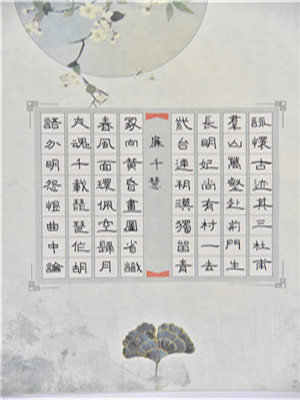 詠懷古迹其三杜甫
羣山萬壑赴荊門生
長明妃尚有村一去
紫台連朔漠獨留青
廉千慧
冢向黃昏畫圖省識
春風面環佩空歸月
夜魂千載琵琶作胡
語分明怨恨曲中論